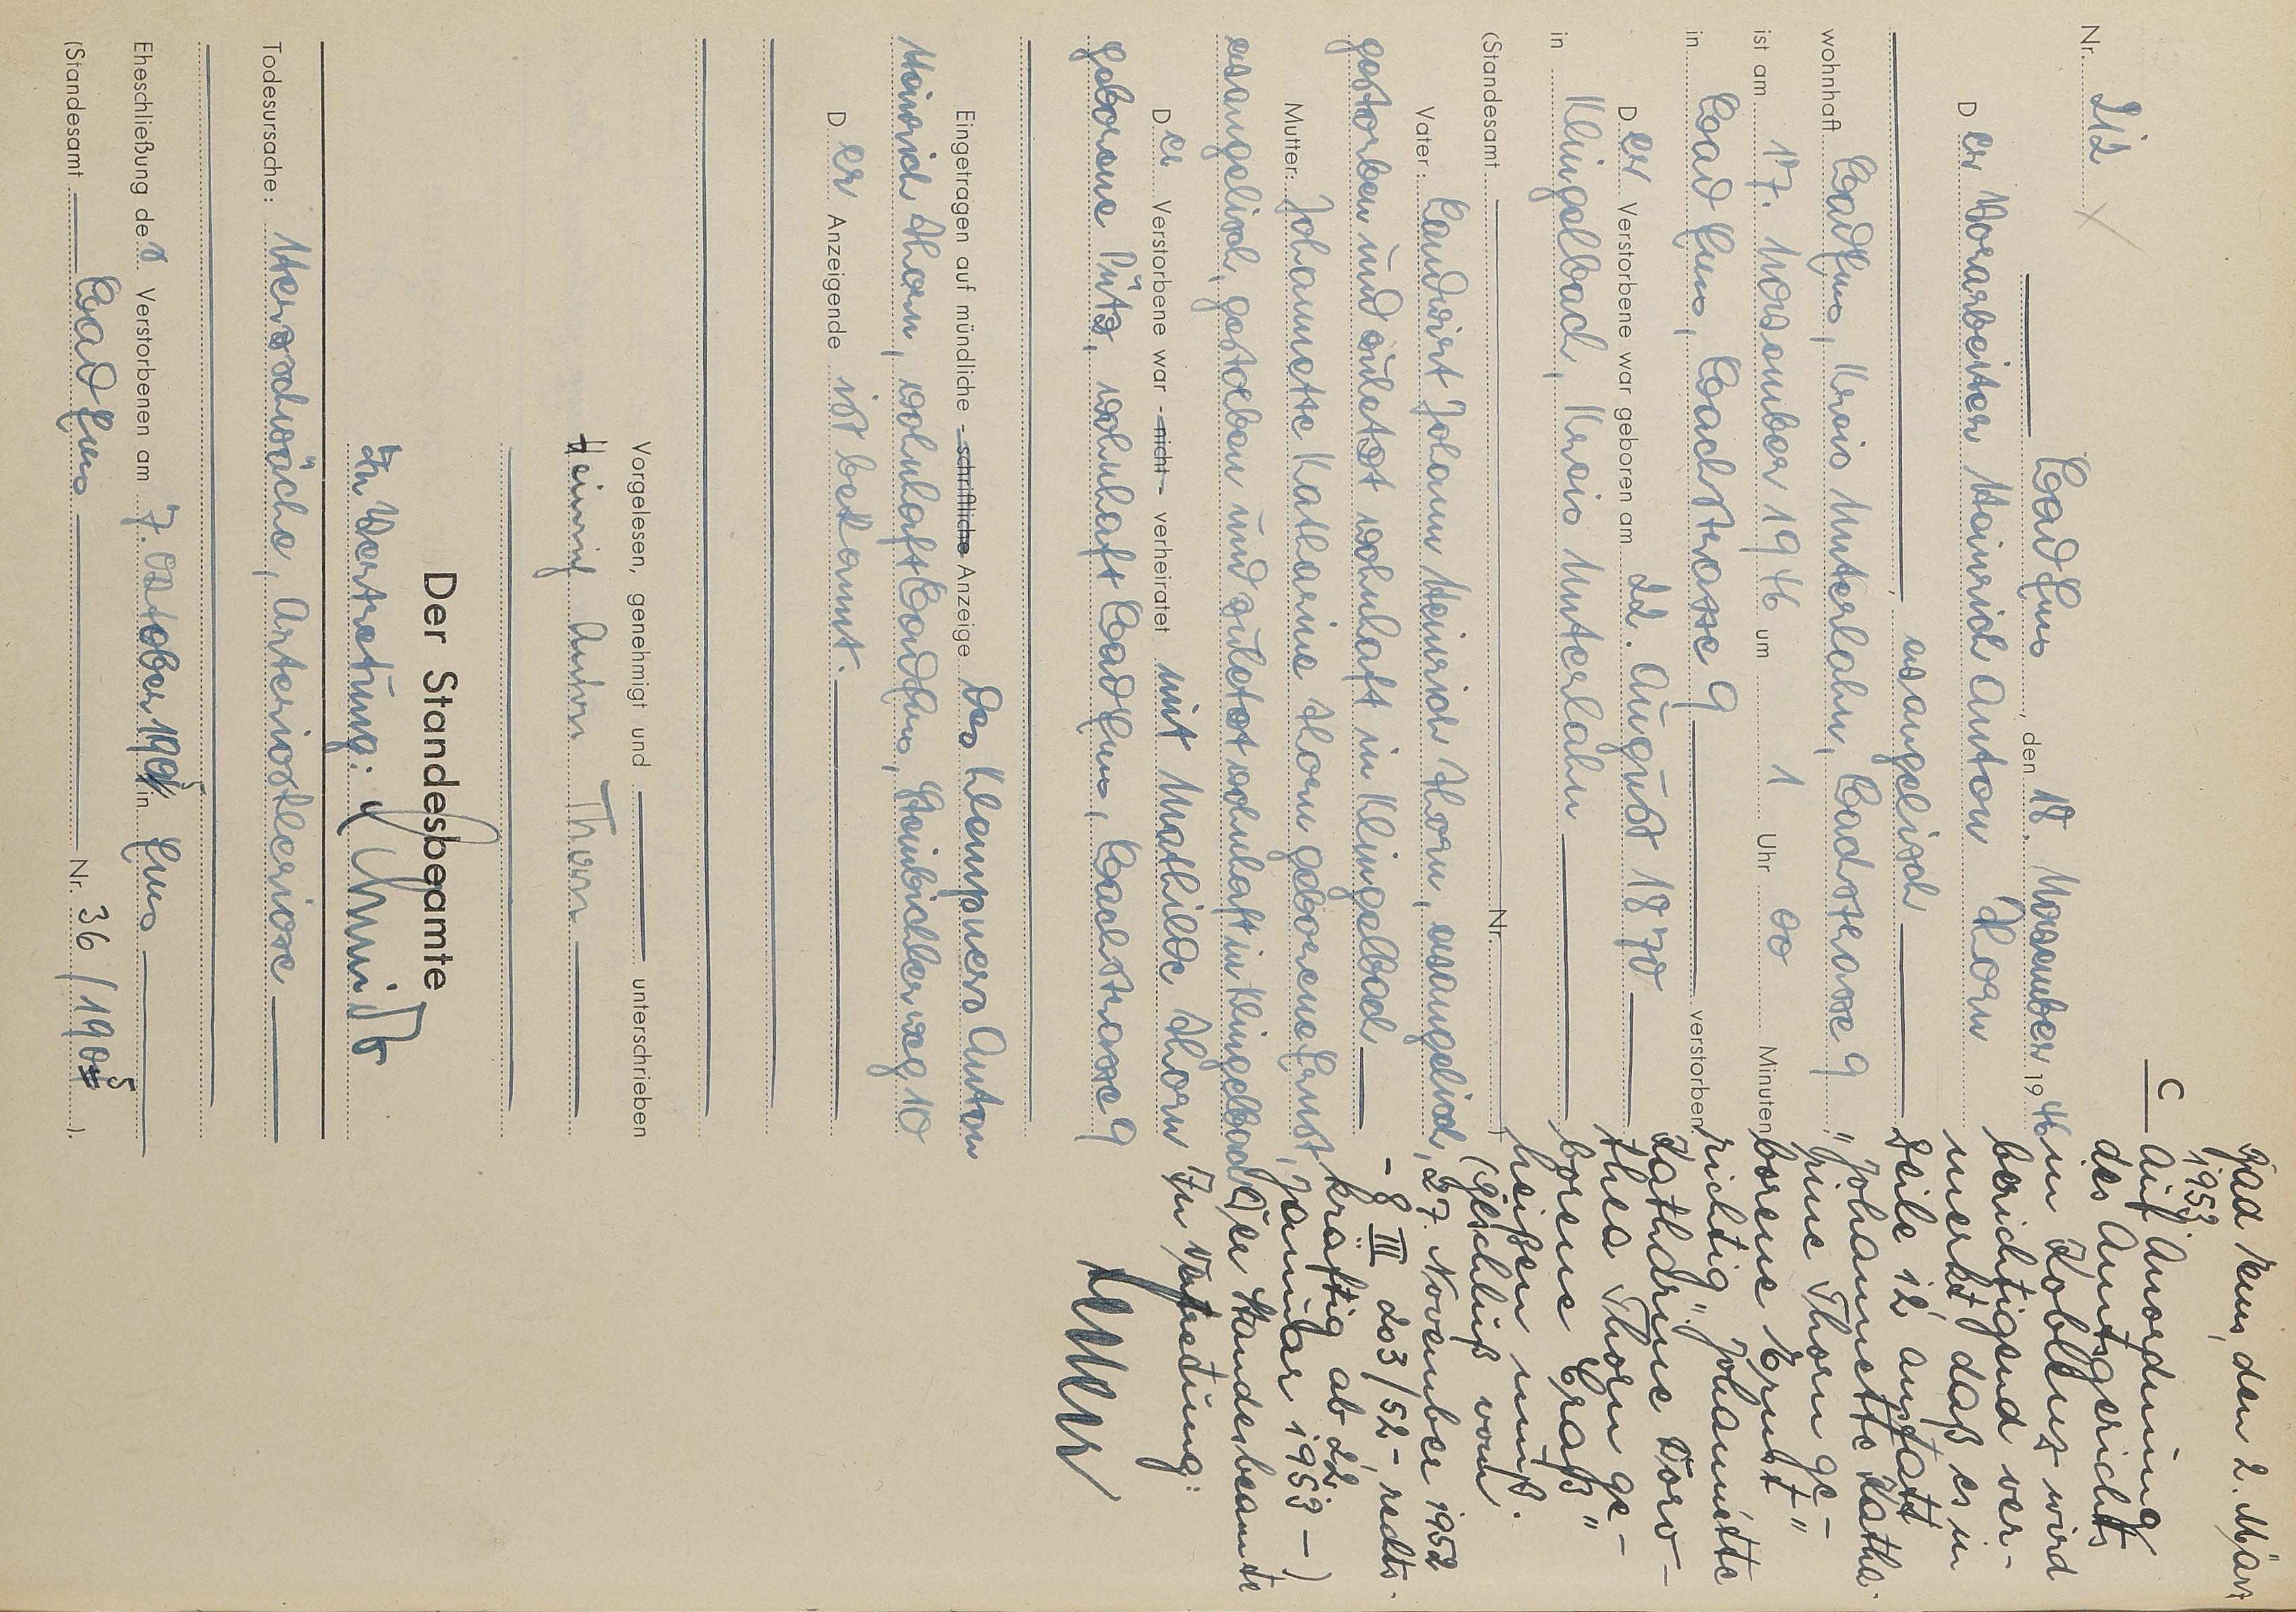 Nr. 212
Bad Ems, den 18. November 1946
Der Vorarbeiter Heinrich Anton Thorn
evangelisch
wohnhaft Bad Ems, Kreis Unterlahn, Bachstrasse 9
ist am 17. November 1946 um 1 Uhr 00 Minuten
in Bad Ems, Bachstrasse 9 verstorben.
Der Verstorbene war geboren am 22. August 1870
in Klingelbach, Kreis Unterlahn
(Standesamt Nr. )
Vater: Landwirt Johann Heinrich Thorn, evangelisch,
gestorben und zuletzt wohnhaft in Klingelbach
Mutter: Johannette Katharine Thorn geborene Ernst,
evangelisch, gestorben und zuletzt wohnhaft in Klingelbach
Der Verstorbene war - nicht - verheiratet mit Mathilde Thorn
geborene Pütz, wohnhaft Bad Ems, Bachstrasse 9
Eingetragen auf mündliche - schriftliche Anzeige des Klempners Anton
Heinrich Thorn, wohnhaft Bad Ems, Steinbicherweg 10
Der Anzeigende ist bekannt.
Vorgelesen, genehmigt und unterschrieben
Heinrich Anton Thorn
Der Standesbeamte
In Vertretung: Schmidt
Todesursache: Herzschwäche, Arterioskleriose
Eheschließung des Verstorbenen am 7. Oktober 1905 in Ems
(Standesamt Bad Ems Nr. 36/1905).
Bad Ems, den 2. März
1953
C Auf Anordnung
des Amtsgerichts
in Koblenz wird
berichtigend ver-
merkt daß es in
Zeile 12 anstatt
"Johannette Katha-
rine Thorn ge-
borene Ernst"
richtig "Johannette
Kathdrine Doro-
thea Thorn ge-
borene Graß"
heißen muß.
(Beschluß vom
27. November 1952
- 8 III 203/52 -, rechts-
kräftig ab 22.
Januar 1953 -)
Der Standesbeamte
In Vertretung: